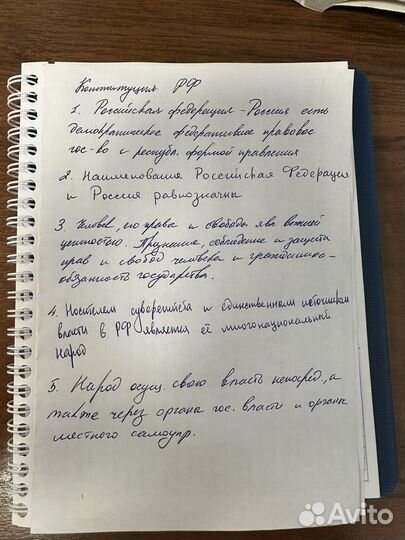 Конституция РФ
1. Российская федерация - Россия есть
демократическое федеративное правовое
гос-во с республ. формой правления
2. Наименования Российская Федерация
и Россия равнозначны
3. Человек, его права и свободы явл. высшей
ценностью. Признание, соблюдение и защита
прав и свобод человека и гражданина -
обязанность государства.
4. Носителем суверенитета и единственным источником
власти в РФ является её многонациональный
народ
5. Народ осущ. свою власть непосред., а
также через органы гос. власти и органы
местного самоупр.
Avito